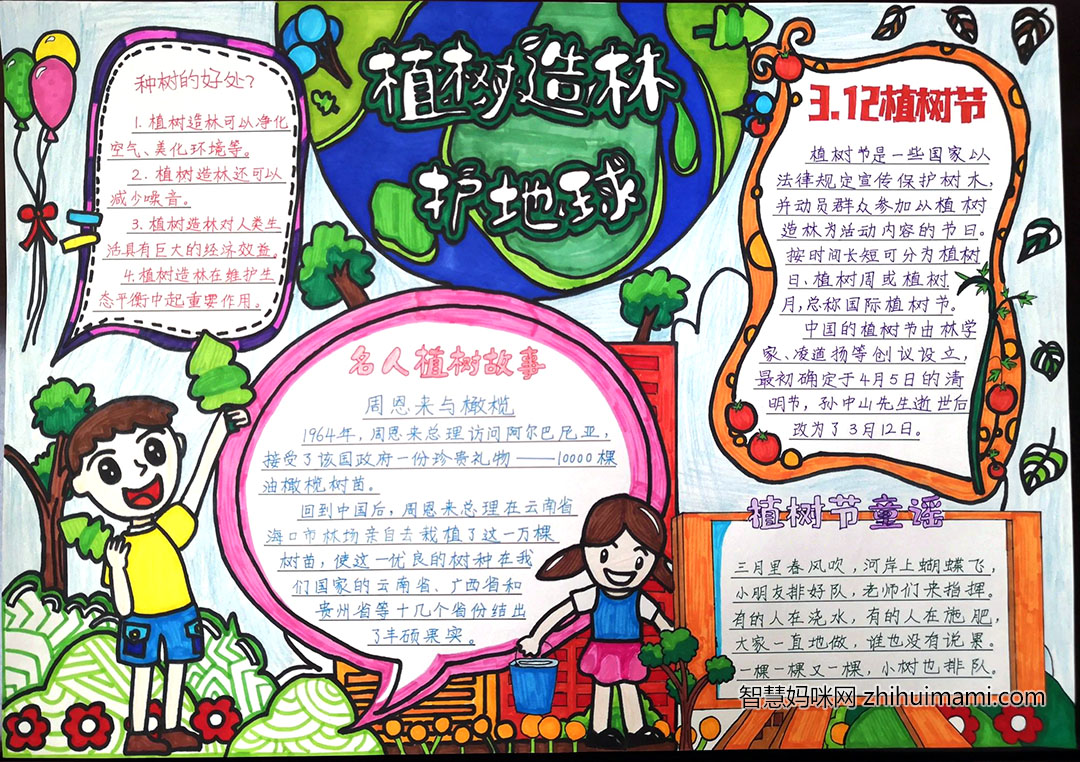 植树造林
护地球
种树的好处?
1.植树造林可以净化
空气、美化环境等。
2.植树造林还可以
减少噪音。
3.植树造林对人类生
活具有巨大的经济效益。
4.植树造林在维护生
态平衡中起重要作用。
名人植树故事
周恩来与橄榄
1964年,周恩来总理访问阿尔巴尼亚,
接受了该国政府一份珍贵礼物——10000棵
油橄榄树苗。
回到中国后,周恩来总理在云南省
海口市林场亲自去栽植了这一万棵
树苗,使这一优良的树种在我
们国家的云南省、广西省和
贵州省等十几个省份结出
了丰硕果实。
3.12植树节
植树节是一些国家以
法律规定宣传保护树木,
并动员群众参加以植树
造林为活动内容的节日。
按时间长短可分为植树
日、植树周或植树
月,总称国际植树节。
中国的植树节由林学
家、凌道扬等创议设立,
最初确定于4月5日的清
明节,孙中山先生逝世后
改为了3月12日。
植树节童谣
三月里春风吹,河岸上蝴蝶飞,
小朋友排好队,老师们来指挥。
有的人在浇水,有的人在施肥,
大家一直地做,谁也没有说累。
一棵一棵又一棵,小树也排队。
智慧妈咪网 zhihuimami.com